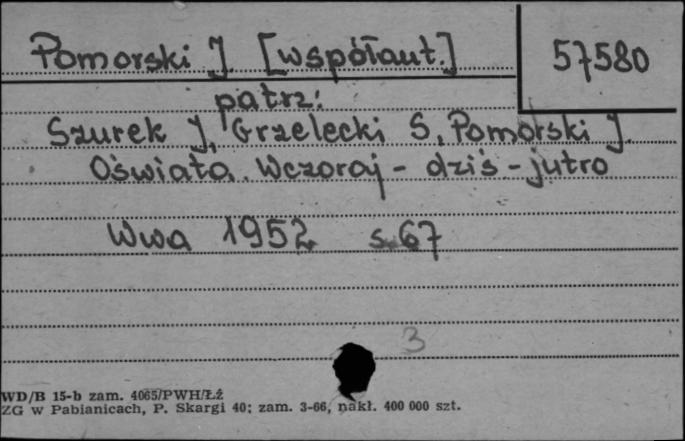 Pomorski J [współaut.]
57580
patrz:
Szurek J, Grzelecki S, Pomorski J.
Oświata. Wczoraj - dziś - jutro
Wwa 1952 s. 67
3
WD/B 15-b zam. 4065/PWH/Łź
ZG w Pabianicach, P. Skargi 40; zam. 3-66, nakł. 400 000 szt.